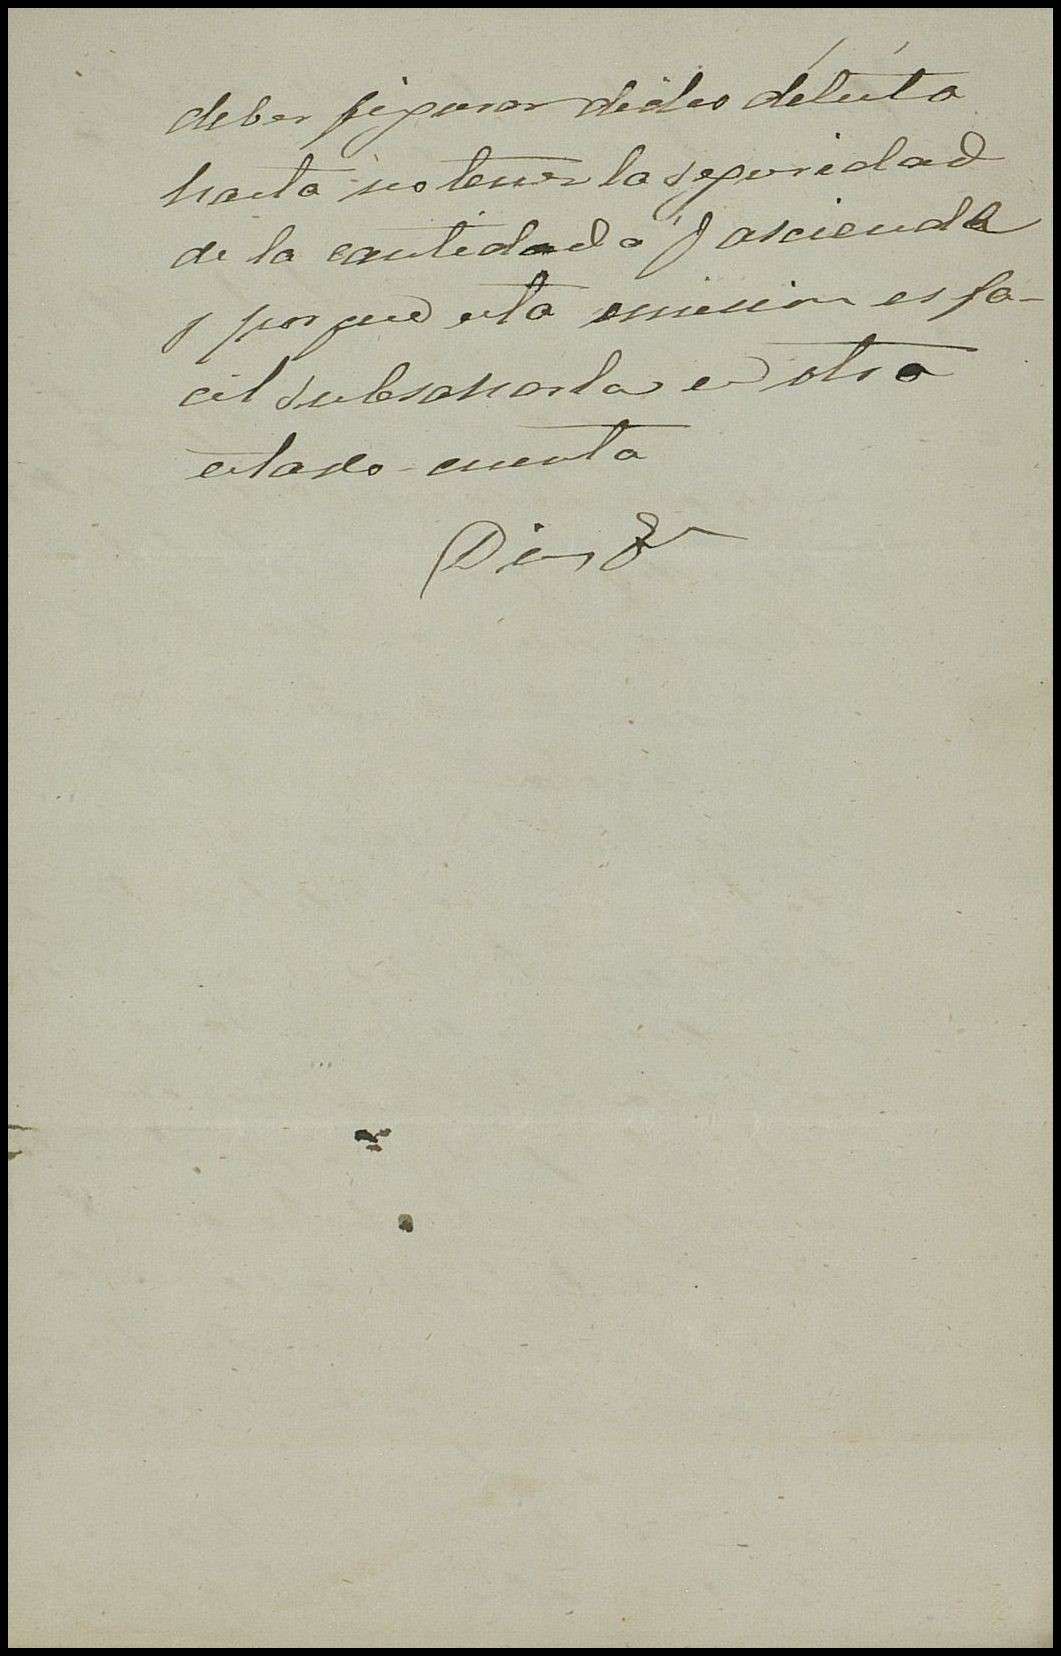 deber figurar dicho débito
hasta no tener la seguridad
de la cantidad a q asciende
y porque esta omision es fa-
cil subsanarla en otro
estado-cuenta